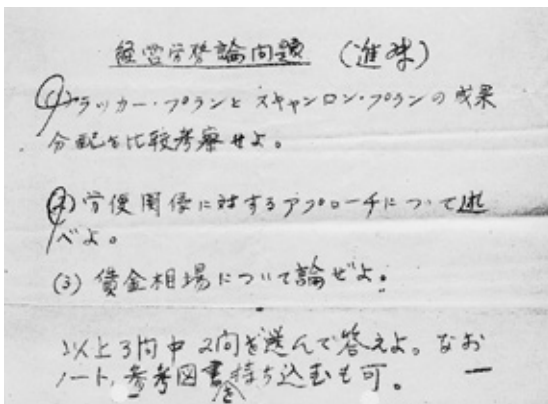 経営労務論問題 (進来)
(1) ラッカー・プランとスキャンロン・プランの成果
分配を比較考察せよ。
(2) 労使関係に対するアプローチについて述
べよ。
(3) 賃金相場について論ぜよ。
以上3問中2問を選んで答えよ。なお
ノート、参考図書を持ち込むも可。